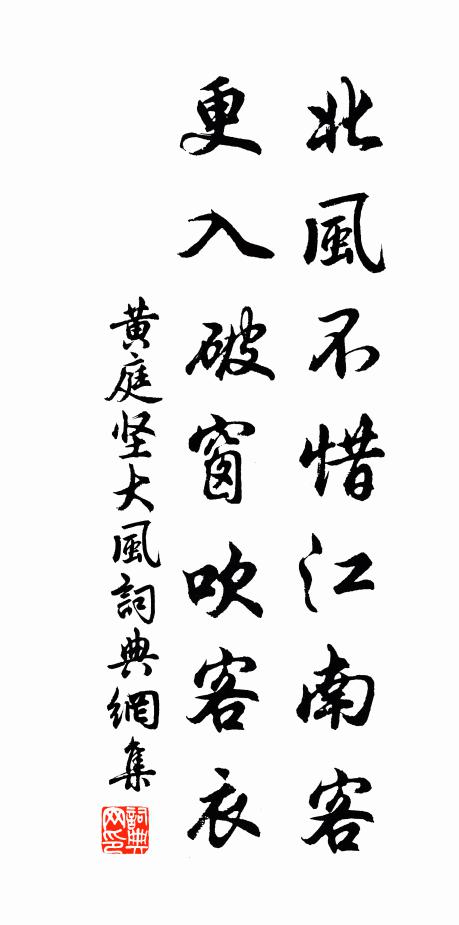 北風不惜江南客
更入破窗吹客衣
黄庭坚大風詞典網集
詞典網印